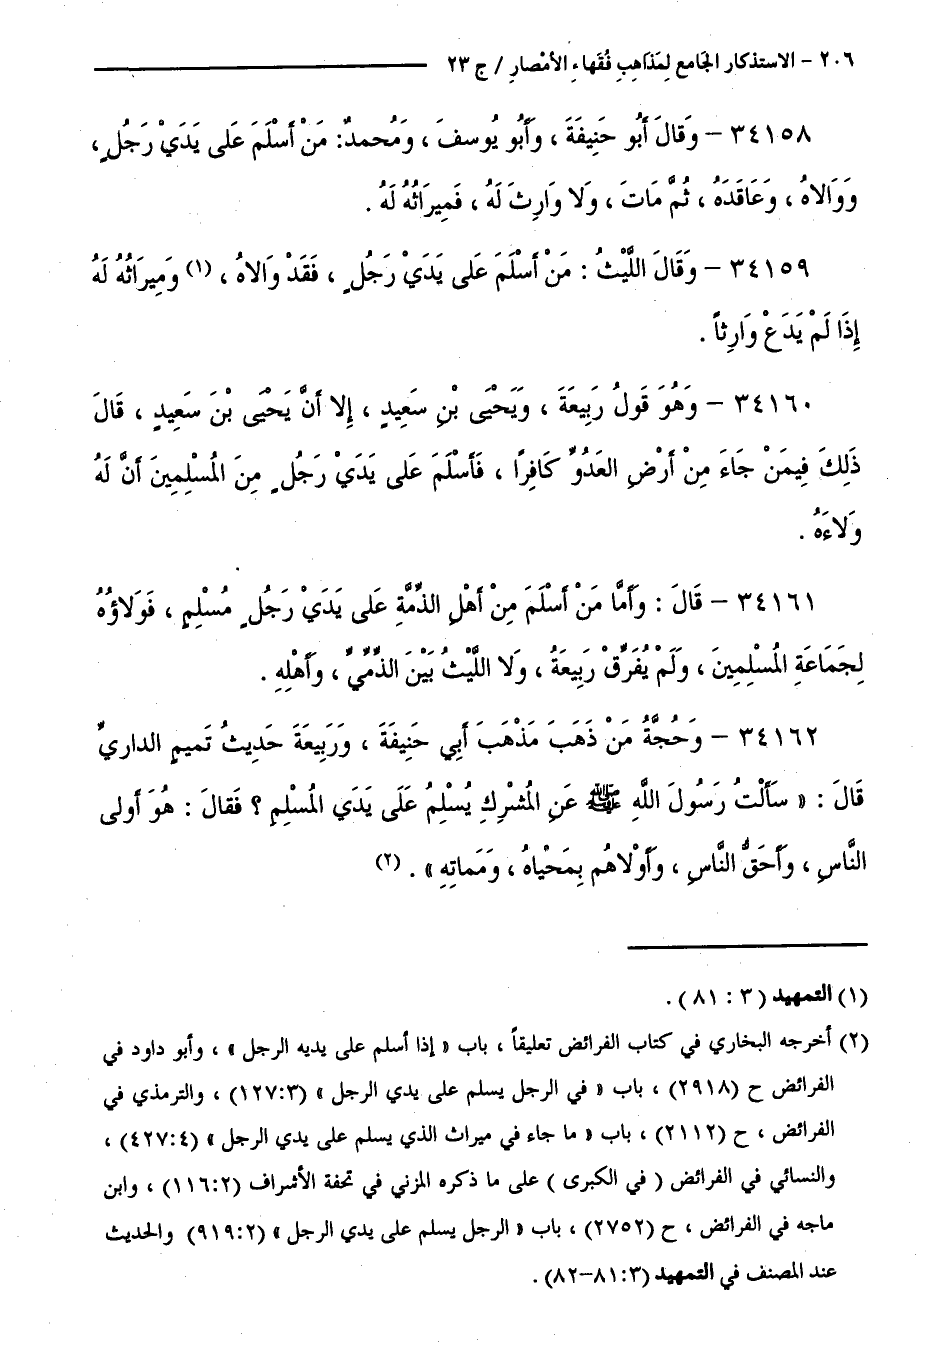 ٢٠٦ – الاستذكار الجَامع لِمَذاهِبِ فُقَهاءِ الأمْصارِ / ج ٢٣
٣٤١٥٨ – وَقالَ أَبُو حَنِيفَةَ ، وَأَبُو يُوسفَ ، وَمُحمدٌ: مَنْ أَسْلَمَ عَلى يَدَيْ رَجُلٍ ،
وَوَالاهُ ، وَعَاقَدَهُ ، ثُمَّ مَاتَ ، وَلا وَارِثَ لَهُ ، فَمِيرَاثُهُ لَهُ .
٣٤١٥٩ – وَقَالَ اللَّيْثُ : مَنْ أَسْلَمَ عَلى يَدَيْ رَجُلٍ ، فَقَدْ وَالاهُ ، (١) وَمِيرَاثُهُ لَهُ
إِذَا لَمْ يَدَعْ وَارِثاً .
٣٤١٦٠ – وَهُوَ قَولُ رَبِيعَةَ ، وَيَحْيَى بْنِ سَعِيدٍ ، إِلا أَنَّ يَحْيَى بْنَ سَعِيدٍ ، قَالَ
ذَلِكَ فِيمَنْ جَاءَ مِنْ أَرْضِ العَدُوِّ كَافِرًا ، فَأَسْلَمَ عَلى يَدَيْ رَجُلٍ مِنَ المُسْلِمِينَ أَنَّ لَهُ
وَلاءَهُ .
٣٤١٦١ – قَالَ : وَأَمَّا مَنْ أَسْلَمَ مِنْ أَهْلِ الذِّمَّةِ عَلى يَدَيْ رَجُلٍ مُسْلِمٍ ، فَوَلاؤُهُ
لِجَمَاعَةِ المُسْلِمِينَ ، وَلَمْ يُفَرِّقْ رَبِيعَةُ ، وَلا اللَّيْثُ بَيْنَ الذِّمِّيِّ ، وَأَهْلِهِ .
٣٤١٦٢ – وَحُجَّةُ مَنْ ذَهَبَ مَذْهَبَ أَبِي حَنِيفَةَ ، وَرَبِيعَةَ حَدِيثُ تَميمٍ الداريِّ
قَالَ : « سَأَلْتُ رَسُولَ اللَّهِ ﷺ عَنِ المُشْرِكِ يُسْلِمُ عَلَى يَدَي المُسْلِمِ ؟ فَقالَ : هُوَ أَولى
النَّاسِ ، وَأَحَقُّ النَّاسِ ، وَأَوْلاهُم بِمَحْياهُ ، وَمَماتِهِ » . (٢)
(١) التمهيد (٣ : ٨١) .
(٢) أخرجه البخاري في كتاب الفرائض تعليقاً ، باب « إذا أسلم على يديه الرجل » ، وأبو داود في
الفرائض ح (٢٩١٨) ، باب « في الرجل يسلم على يدي الرجل » (١٢٧:٣) ، والترمذي في
الفرائض ، ح (٢١١٢) ، باب « ما جاء في ميراث الذي يسلم على يدي الرجل » (٤٢٧:٤) ،
والنسائي في الفرائض ( في الكبرى ) على ما ذكره المزني في تحفة الأشراف (١١٦:٢) ، وابن
ماجه في الفرائض ، ح (٢٧٥٢) ، باب « الرجل يسلم على يدي الرجل » (٩١٩:٢) والحديث
عند المصنف في التمهيد (٨١:٣–٨٢) .